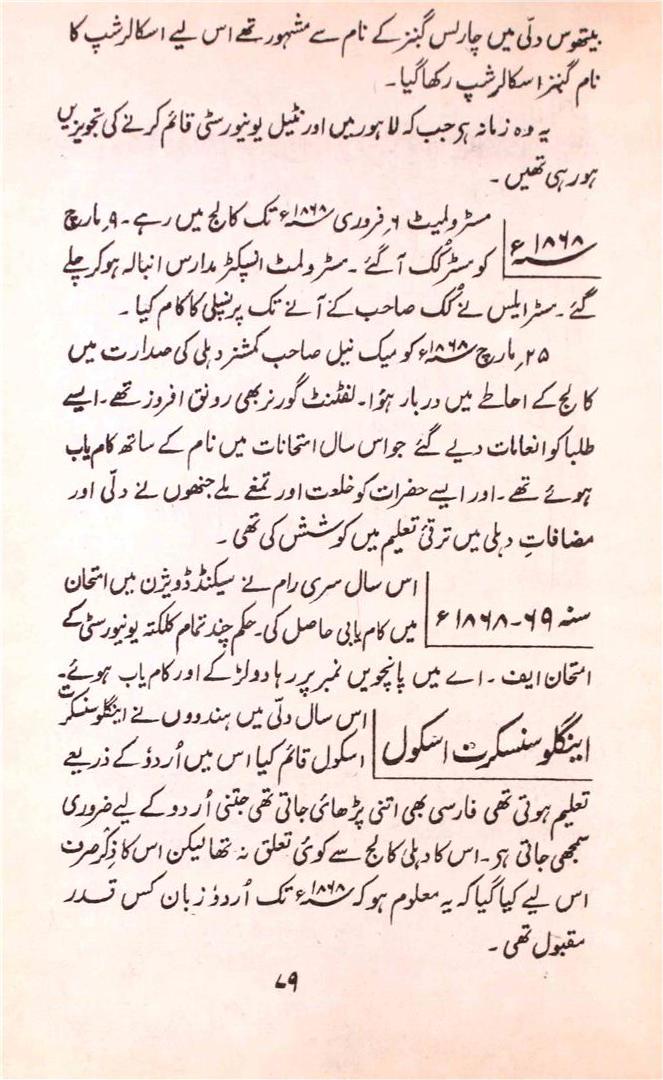 بیتھوس دلّی میں چارلس گبنز کے نام سے مشہور تھے اس لیے اسکالرشپ کا
نام گبنز اسکالرشپ رکھا گیا۔
یہ وہ زمانہ ہی جب کہ لاہور میں اورنٹیل یونیورسٹی قائم کرنے کی تجویزیں
ہو رہی تھیں۔
سنہ ۱۸۶۸ء
مسٹر ولمیٹ ۶؍ فروری سنہ ۱۸۶۸ء تک کالج میں رہے۔ ۹؍ مارچ
کو مسٹر کُک آ گئے۔ مسٹر ولمٹ انسپکٹر مدارس انبالہ ہو کر چلے
گئے۔ مسٹر ایلس نے کُک صاحب کے آنے تک پرنسپلی کا کام کیا۔
۲۵؍ مارچ سنہ ۱۸۶۸ء کو میک نیل صاحب کمشنر دہلی کی صدارت میں
کالج کے احاطے میں دربار ہؤا۔ لفٹنٹ گورنر بھی رونق افروز تھے۔ ایسے
طلبا کو انعامات دیے گئے جو اس سال امتحانات میں نام کے ساتھ کام یاب
ہوئے تھے۔ اور ایسے حضرات کو خلعت اور تمغے ملے جنھوں نے دلّی اور
مضافاتِ دہلی میں ترقیٔ تعلیم میں کوشش کی تھی۔
سنہ ۶۹-۱۸۶۸ء
اس سال سری رام نے سیکنڈ ڈویژن میں امتحان
میں کام یابی حاصل کی۔ حکم چند تمام کلکتہ یونیورسٹی کے
امتحان ایف۔ اے میں پانچویں نمبر پر رہا دو لڑکے اور کام یاب ہوئے۔
اینگلو سنسکرت اسکول
اس سال دلّی میں ہندووں نے اینگلو سنسکرت
اسکول قائم کیا اس میں اُردوٗ کے ذریعے
تعلیم ہوتی تھی فارسی بھی اتنی پڑھائی جاتی تھی جتنی اُردو کے لیے ضروری
سمجھی جاتی ہی۔ اس کا دہلی کالج سے کوئی تعلق نہ تھا لیکن اس کا ذِکر صرف
اس لیے کیا گیا کہ یہ معلوم ہو کہ سنہ ۱۸۶۸ء تک اُردوٗ زبان کس قدر
مقبول تھی۔
۷۹